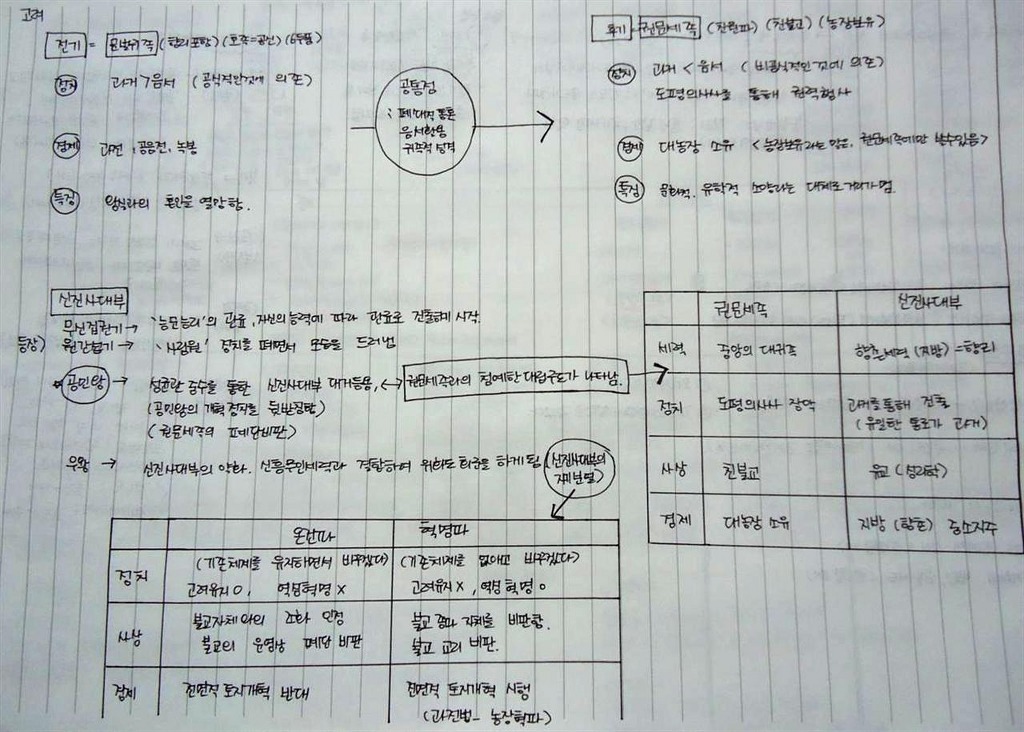 고려
전기 = 문벌귀족 (향리포함) (호족=공신) (6두품)
정치 과거 > 음서 (공식적인것에 의존)
경제 과전, 공음전, 녹봉
특징 왕실과의 혼인을 열망함.
공통점
; 폐쇄적 통혼
음서활용
귀족적 성격
후기 = 권문세족 (친원파) (친불교) (농장보유)
정치 과거 < 음서 (비공식적인것에 의존)
도평의사사를 통해 권력행사
경제 대농장 소유 <농장보유라는 말은, 권문세족에만 쓸수있음>
특징 문학적, 유학적 소양과는 대체로 거리가 멂.
신진사대부
등장)
무신집권기 → '능문능리'의 관료, 자신의 능력에 따라 관료로 진출하기 시작.
원간섭기 → '사림원' 정치를 펴면서 모습을 드러냄
*공민왕 → 성균관 중수를 통한 신진사대부 대거등용, ↔ 권문세족과의 첨예한 대립구도가 나타남.
(공민왕의 개혁정치를 뒷받침함)
(권문세족의 폐단비판)
우왕 → 신진사대부의 약화. 신흥무인세력과 결탁하여 위화도 회군을 하게됨
(신진사대부의
자체분열)
권문세족 신진사대부
세력 중앙의 대귀족 향촌세력 (지방) = 향리
정치 도평의사사 장악 과거를 통해 진출
(유일한 통로가 과거)
사상 친불교 유교 (성리학)
경제 대농장 소유 지방 (향촌) 중소지주
온건파 혁명파
정치 (기존체계를 유지하면서 바꾸겠다) (기존체계를 없애고 바꾸겠다)
고려유지 O, 역성혁명 X 고려유지 X, 역성혁명 O
사상 불교자체와의 조화 인정 불교 자체를 비판함.
불교의 운영상 폐단 비판 불교 교리 비판.
경제 전면적 토지개혁 반대 전면적 토지개혁 시행
(과전법 - 농장혁파)